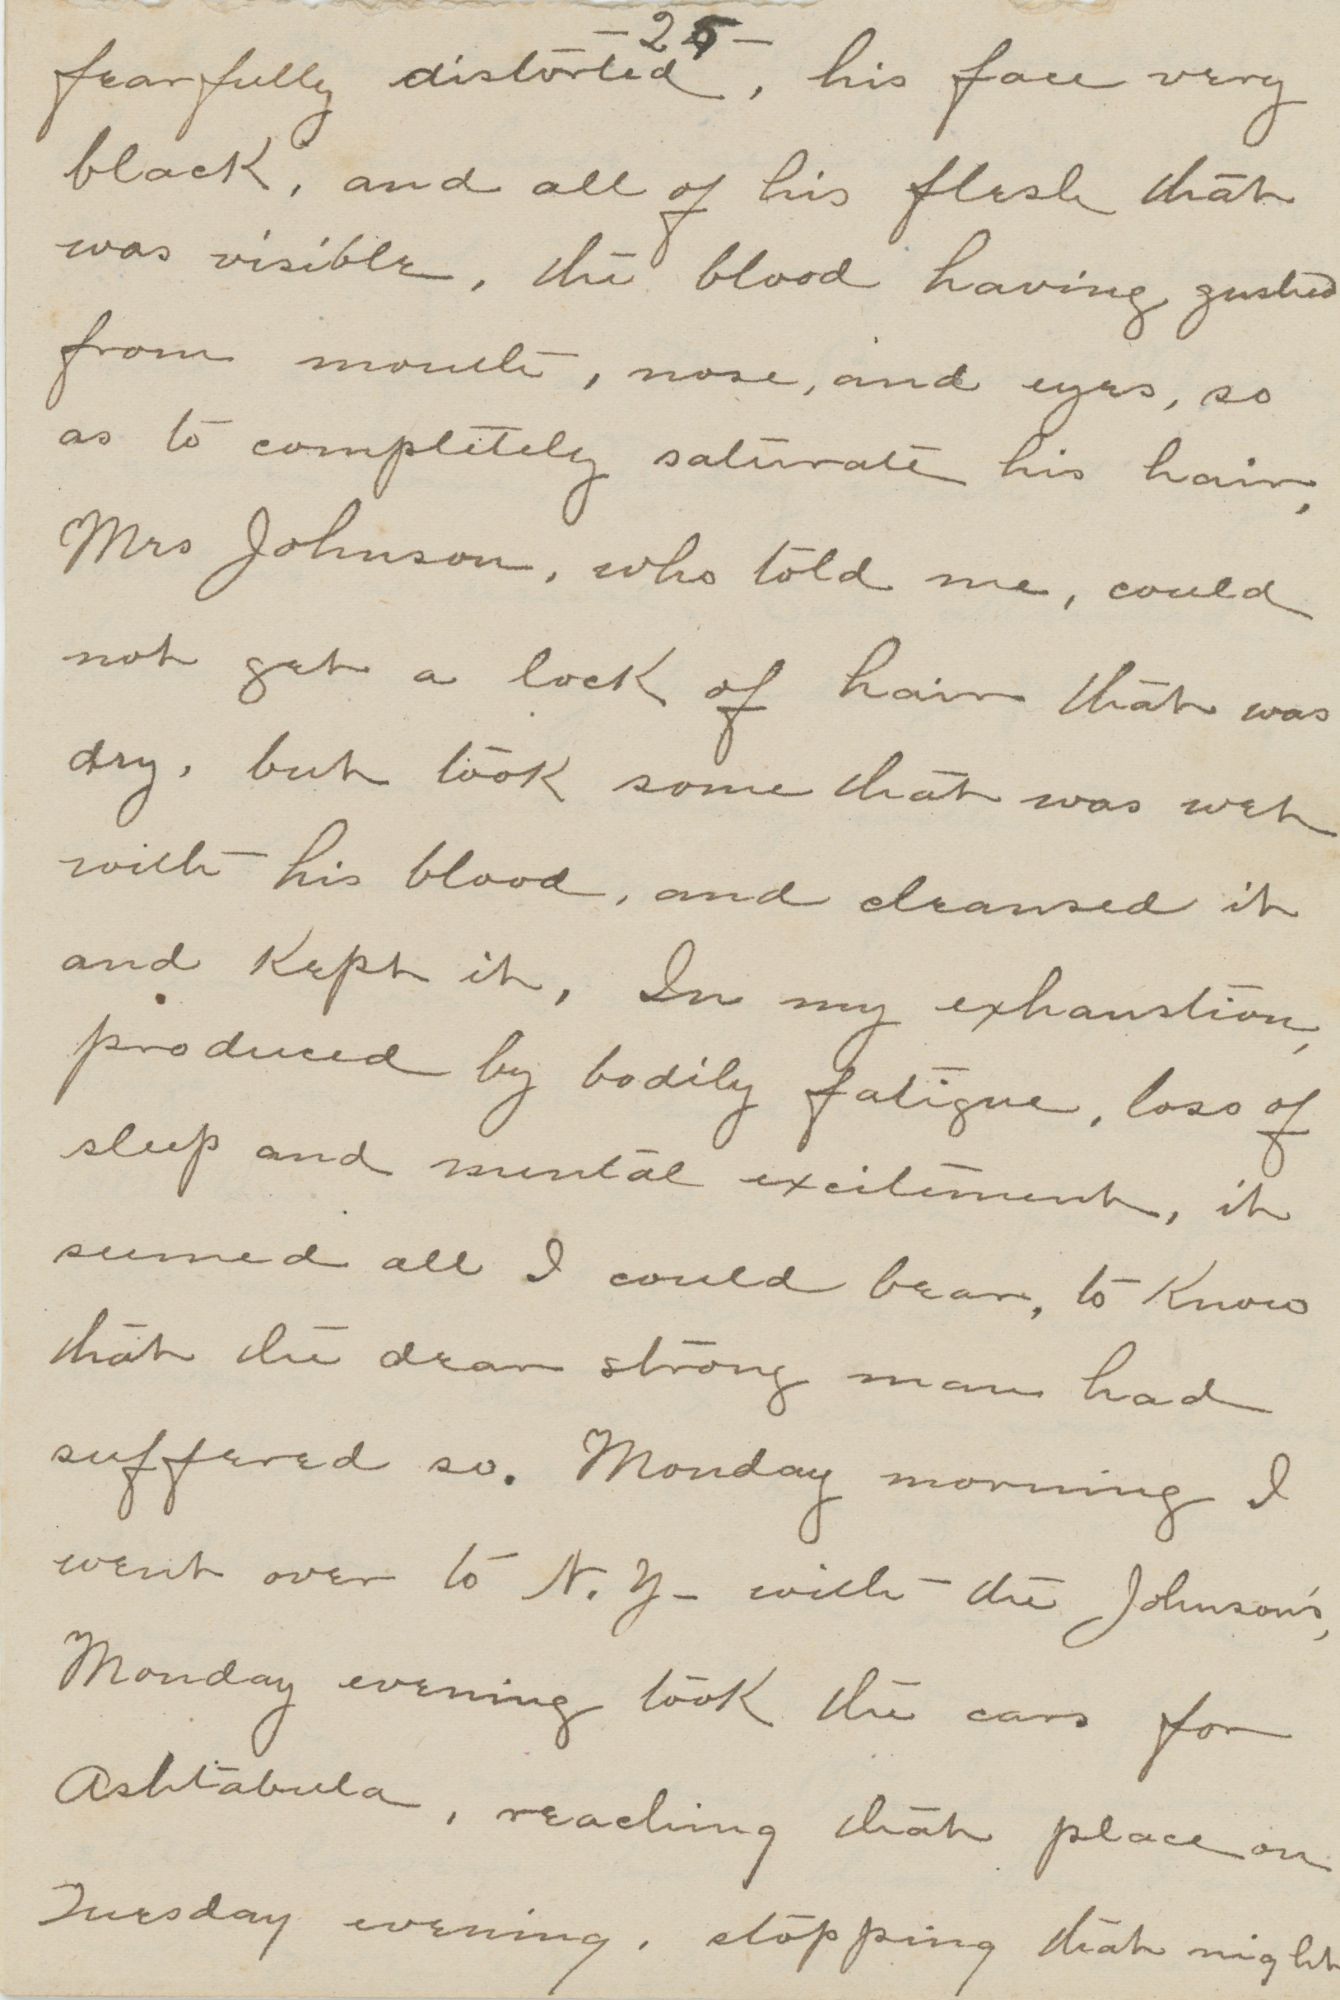 -25-
fearfully distorted, his face very
black, and all of his flesh that
was visible, the blood having gushed
from mouth, nose, and eyes, so
as to completely saturate his hair,
Mrs Johnson, who told me, could
not get a lock of hair that was
dry, but took some that was wet
with his blood, and cleansed it
and kept it, In my exhaustion,
produced by bodily fatigue, loss of
sleep and mental excitement, it
seemed all I could bear, to know
that the dear strong man had
suffered so. Monday morning I
went over to N.Y- with the Johnson's,
Monday evening took the cars for
Ashtabula, reaching that place on
Tuesday evening, stopping that night